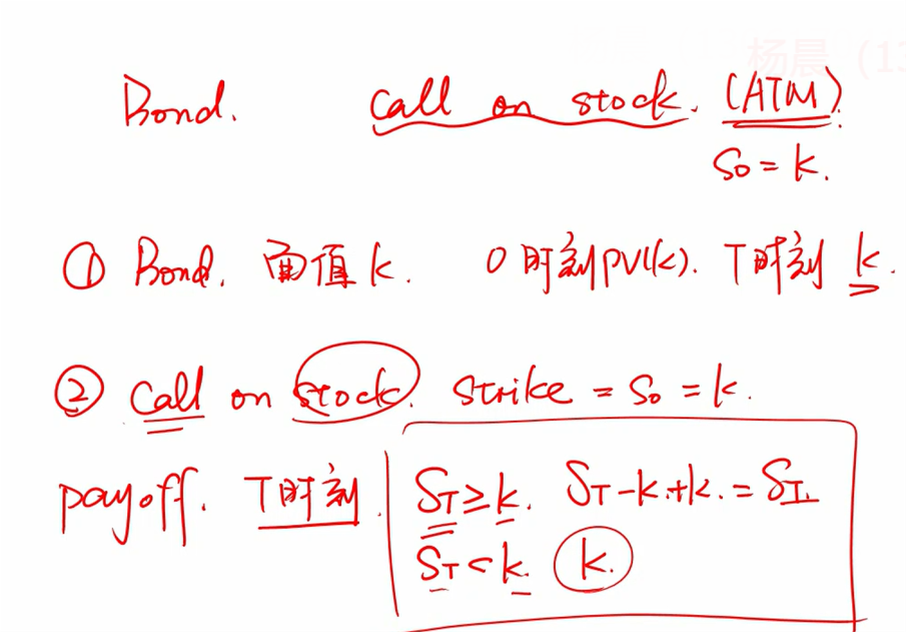 杨晨 (13
Bond. call on stock. (ATM).
S0 = k.
① Bond. 面值 k. 0时刻PV(k). T时刻 k.
② call on stock. strike = S0 = k.
payoff. T时刻. ST ≥ k. ST - k + k. = ST.
ST < k. k.